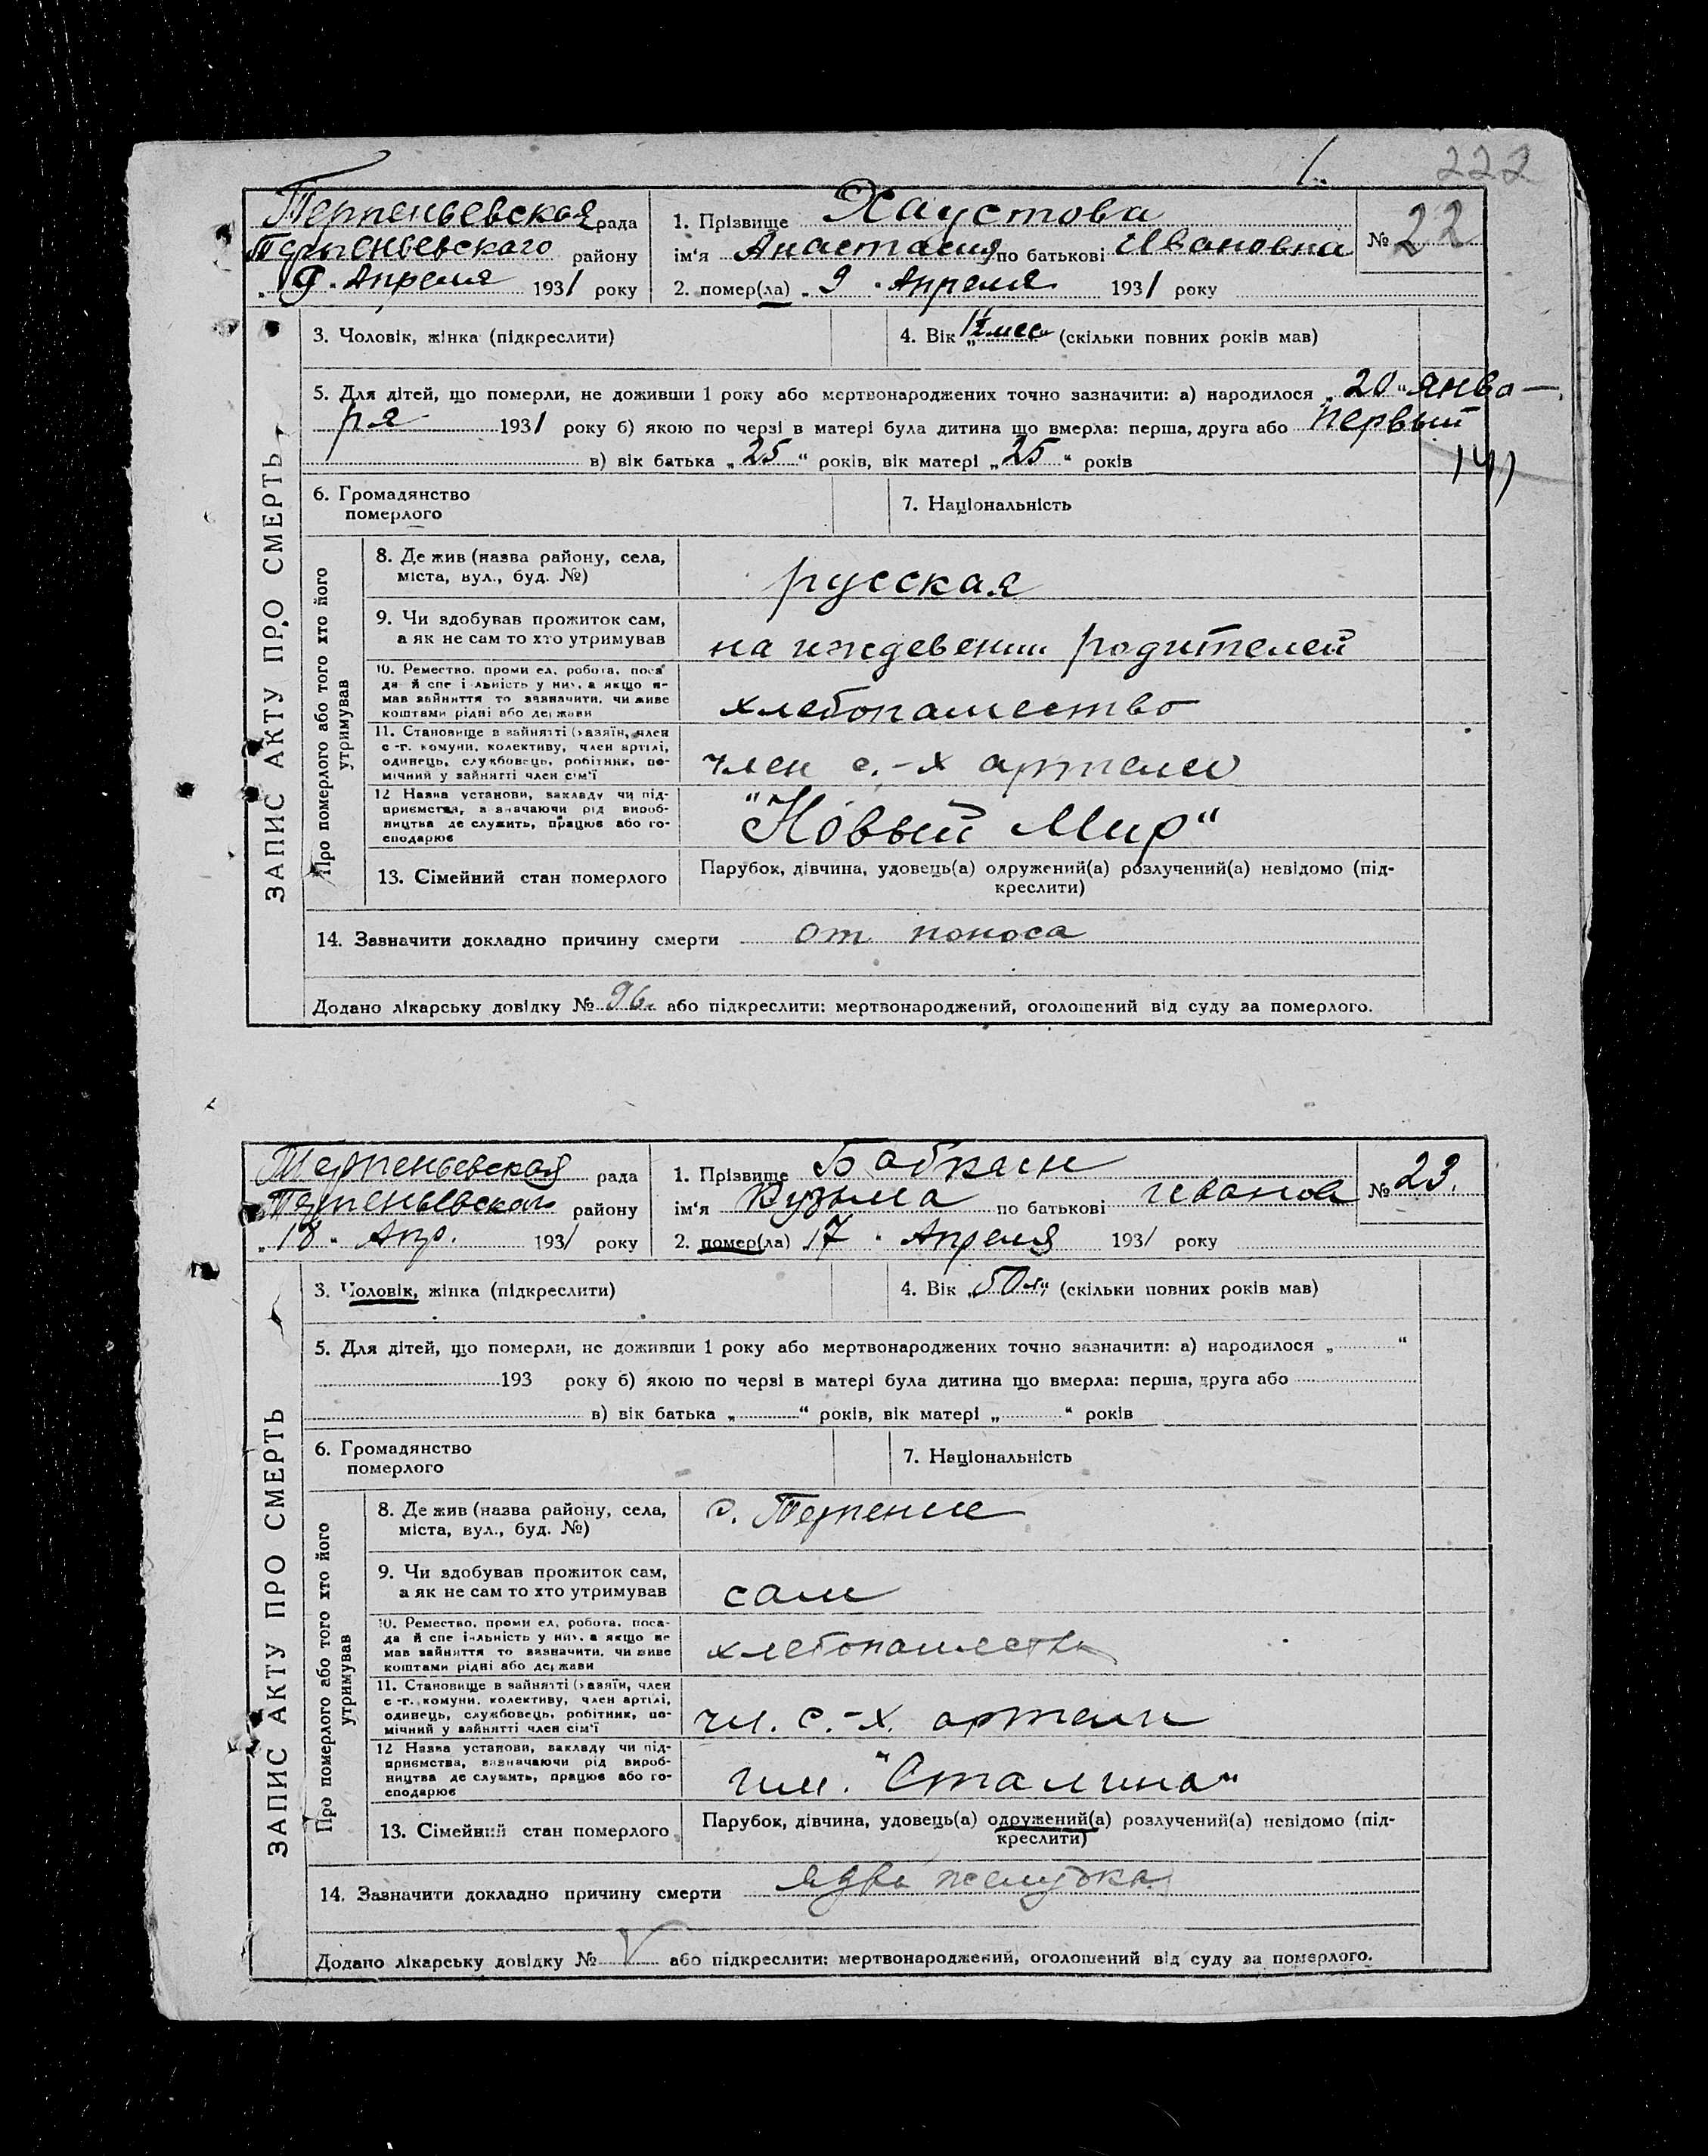 1. 222
Терпеньевская рада 1. Прізвище Хаустова № 22
Терпеньевского району ім'я Анастасия по батькові Ивановна
„9“ Апреля 1931 року 2. помер(ла) „9“ Апреля 1931 року
ЗАПИС АКТУ ПРО СМЕРТЬ
3. Чоловік, жінка (підкреслити) 4. Вік (скільки повних років мав)
5. Для дітей, що померли, не доживши 1 року або мертвонароджених точно зазначити: а) народилося „20“ янва-
ря 1931 року б) якою по черзі в матері була дитина що вмерла: перша, друга або первый
в) вік батька „25“ років, вік матері „25“ років
6. Громадянство 7. Національність
померлого
Про померлого або того хто його
утримував
8. Де жив (назва району, села,
міста, вул., буд. №) русская
9. Чи здобував прожиток сам,
а як не сам то хто утримував на иждевении родителей
10. Ремество, проми ел, робота, поса
да й спе і льність у них, а якщо не
мав зайняття то зазначити, чи живе
коштами рідні або держави хлебопашество
11. Становище в зайнятті (хазяїн, член
с-г. комуни, колективу, член артілі,
одинець, службовець, робітник, по-
мічний у зайнятті член сім'ї член с.-х артели
12 Назва установи, закладу чи під-
приємства, зазначаючи рід вироб-
ництва де служить, працює або го-
сподарює "Новый Мир"
13. Сімейний стан померлого Парубок, дівчина, удовець(а) одружений(а) розлучений(а) невідомо (під-
креслити)
14. Зазначити докладно причину смерти от поноса
Додано лікарську довідку № 96 або підкреслити: мертвонароджений, оголошений від суду за померлого.
Терпеньевская рада 1. Прізвище № 23.
Терпеньевского району ім'я Кузьма по батькові Иванов
„18“ Апр. 1931 року 2. помер(ла) 17 “ Апреля 1931 року
ЗАПИС АКТУ ПРО СМЕРТЬ
3. Чоловік, жінка (підкреслити) 4. Вік „50 л“ (скільки повних років мав)
5. Для дітей, що померли, не доживши 1 року або мертвонароджених точно зазначити: а) народилося „ “
193 року б) якою по черзі в матері була дитина що вмерла: перша, друга або
в) вік батька „ “ років, вік матері „ “ років
6. Громадянство 7. Національність
померлого
Про померлого або того хто його
утримував
8. Де жив (назва району, села,
міста, вул., буд. №) с. Терпение
9. Чи здобував прожиток сам,
а як не сам то хто утримував сам
10. Ремество, проми ел, робота, поса-
да й спе іальність у них, а якщо не
мав зайняття то зазначити, чи живе
коштами рідні або держави хлебопашество
11. Становище в зайнятті (хазяїн, член
с-г. комуни, колективу, член артілі,
одинець, службовець, робітник, по-
мічний у зайнятті член сім'ї чл. с.-х. артели
12 Назва установи, закладу чи під-
приємства, зазначаючи рід вироб-
ництва де служить, працює або го-
сподарює им. "Сталина"
13. Сімейний стан померлого Парубок, дівчина, удовець(а) одружений(а) розлучений(а) невідомо (під-
креслити)
14. Зазначити докладно причину смерти язва желудка
Додано лікарську довідку № або підкреслити: мертвонароджений, оголошений від суду за померлого.